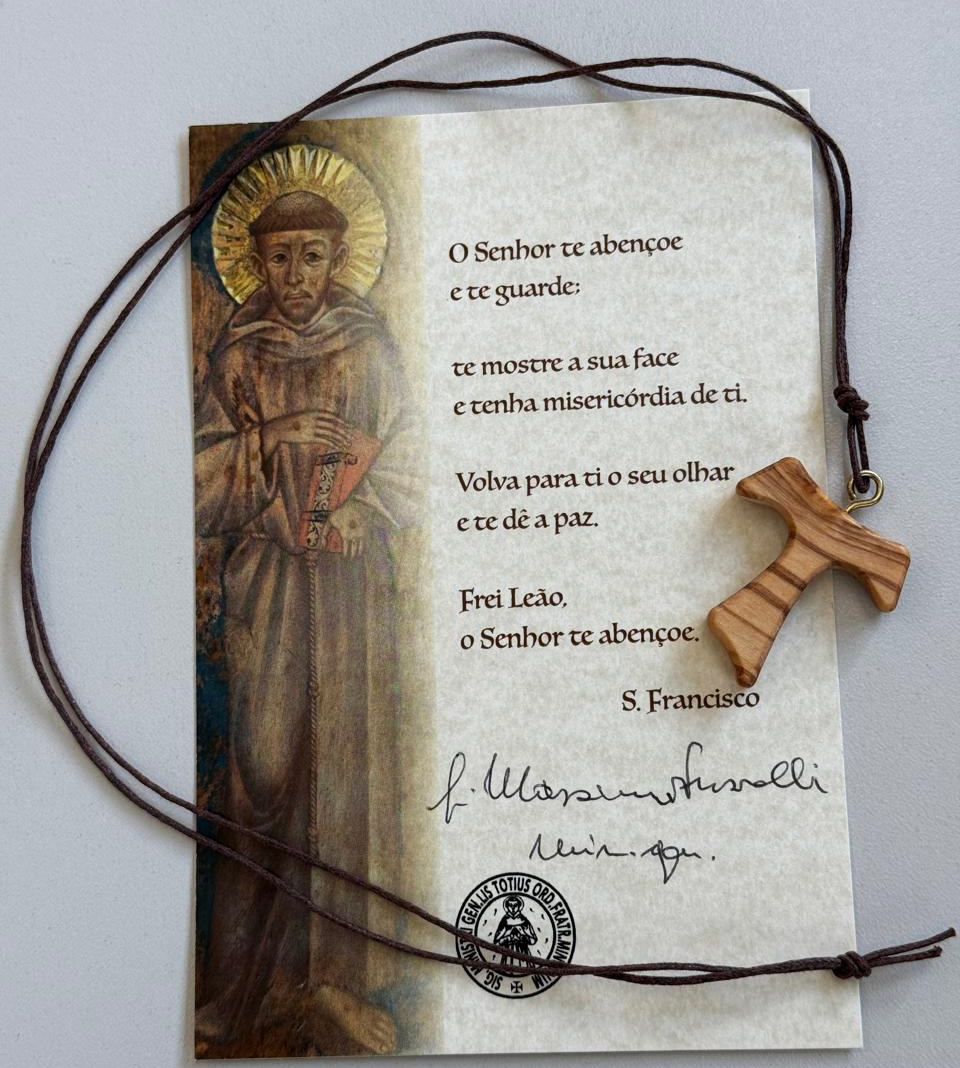 O Senhor te abençoe
e te guarde;
te mostre a sua face
e tenha misericórdia de ti.
Volva para ti o seu olhar
e te dê a paz.
Frei Leão,
o Senhor te abençoe.
S. Francisco
fr. Massimo Fusarelli
Min. gen.
SIG. MINISTRI GEN.LIS TOTIUS ORD.FRATR.MIN